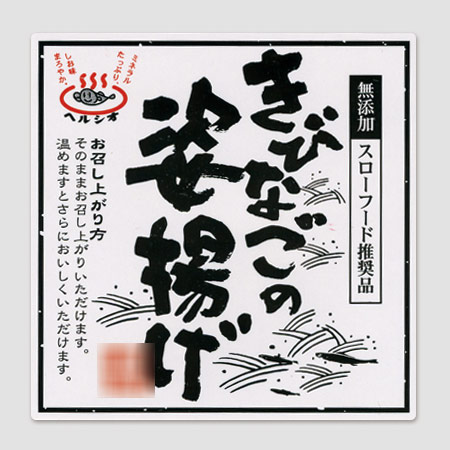 無添加 スローフード推奨品
きびなごの
姿揚げ
ミネラル
たっぷり、
しお味
まろやか。
ヘルシオ
お召し上がり方
そのままお召し上がりいただけます。
温めますとさらにおいしくいただけます。